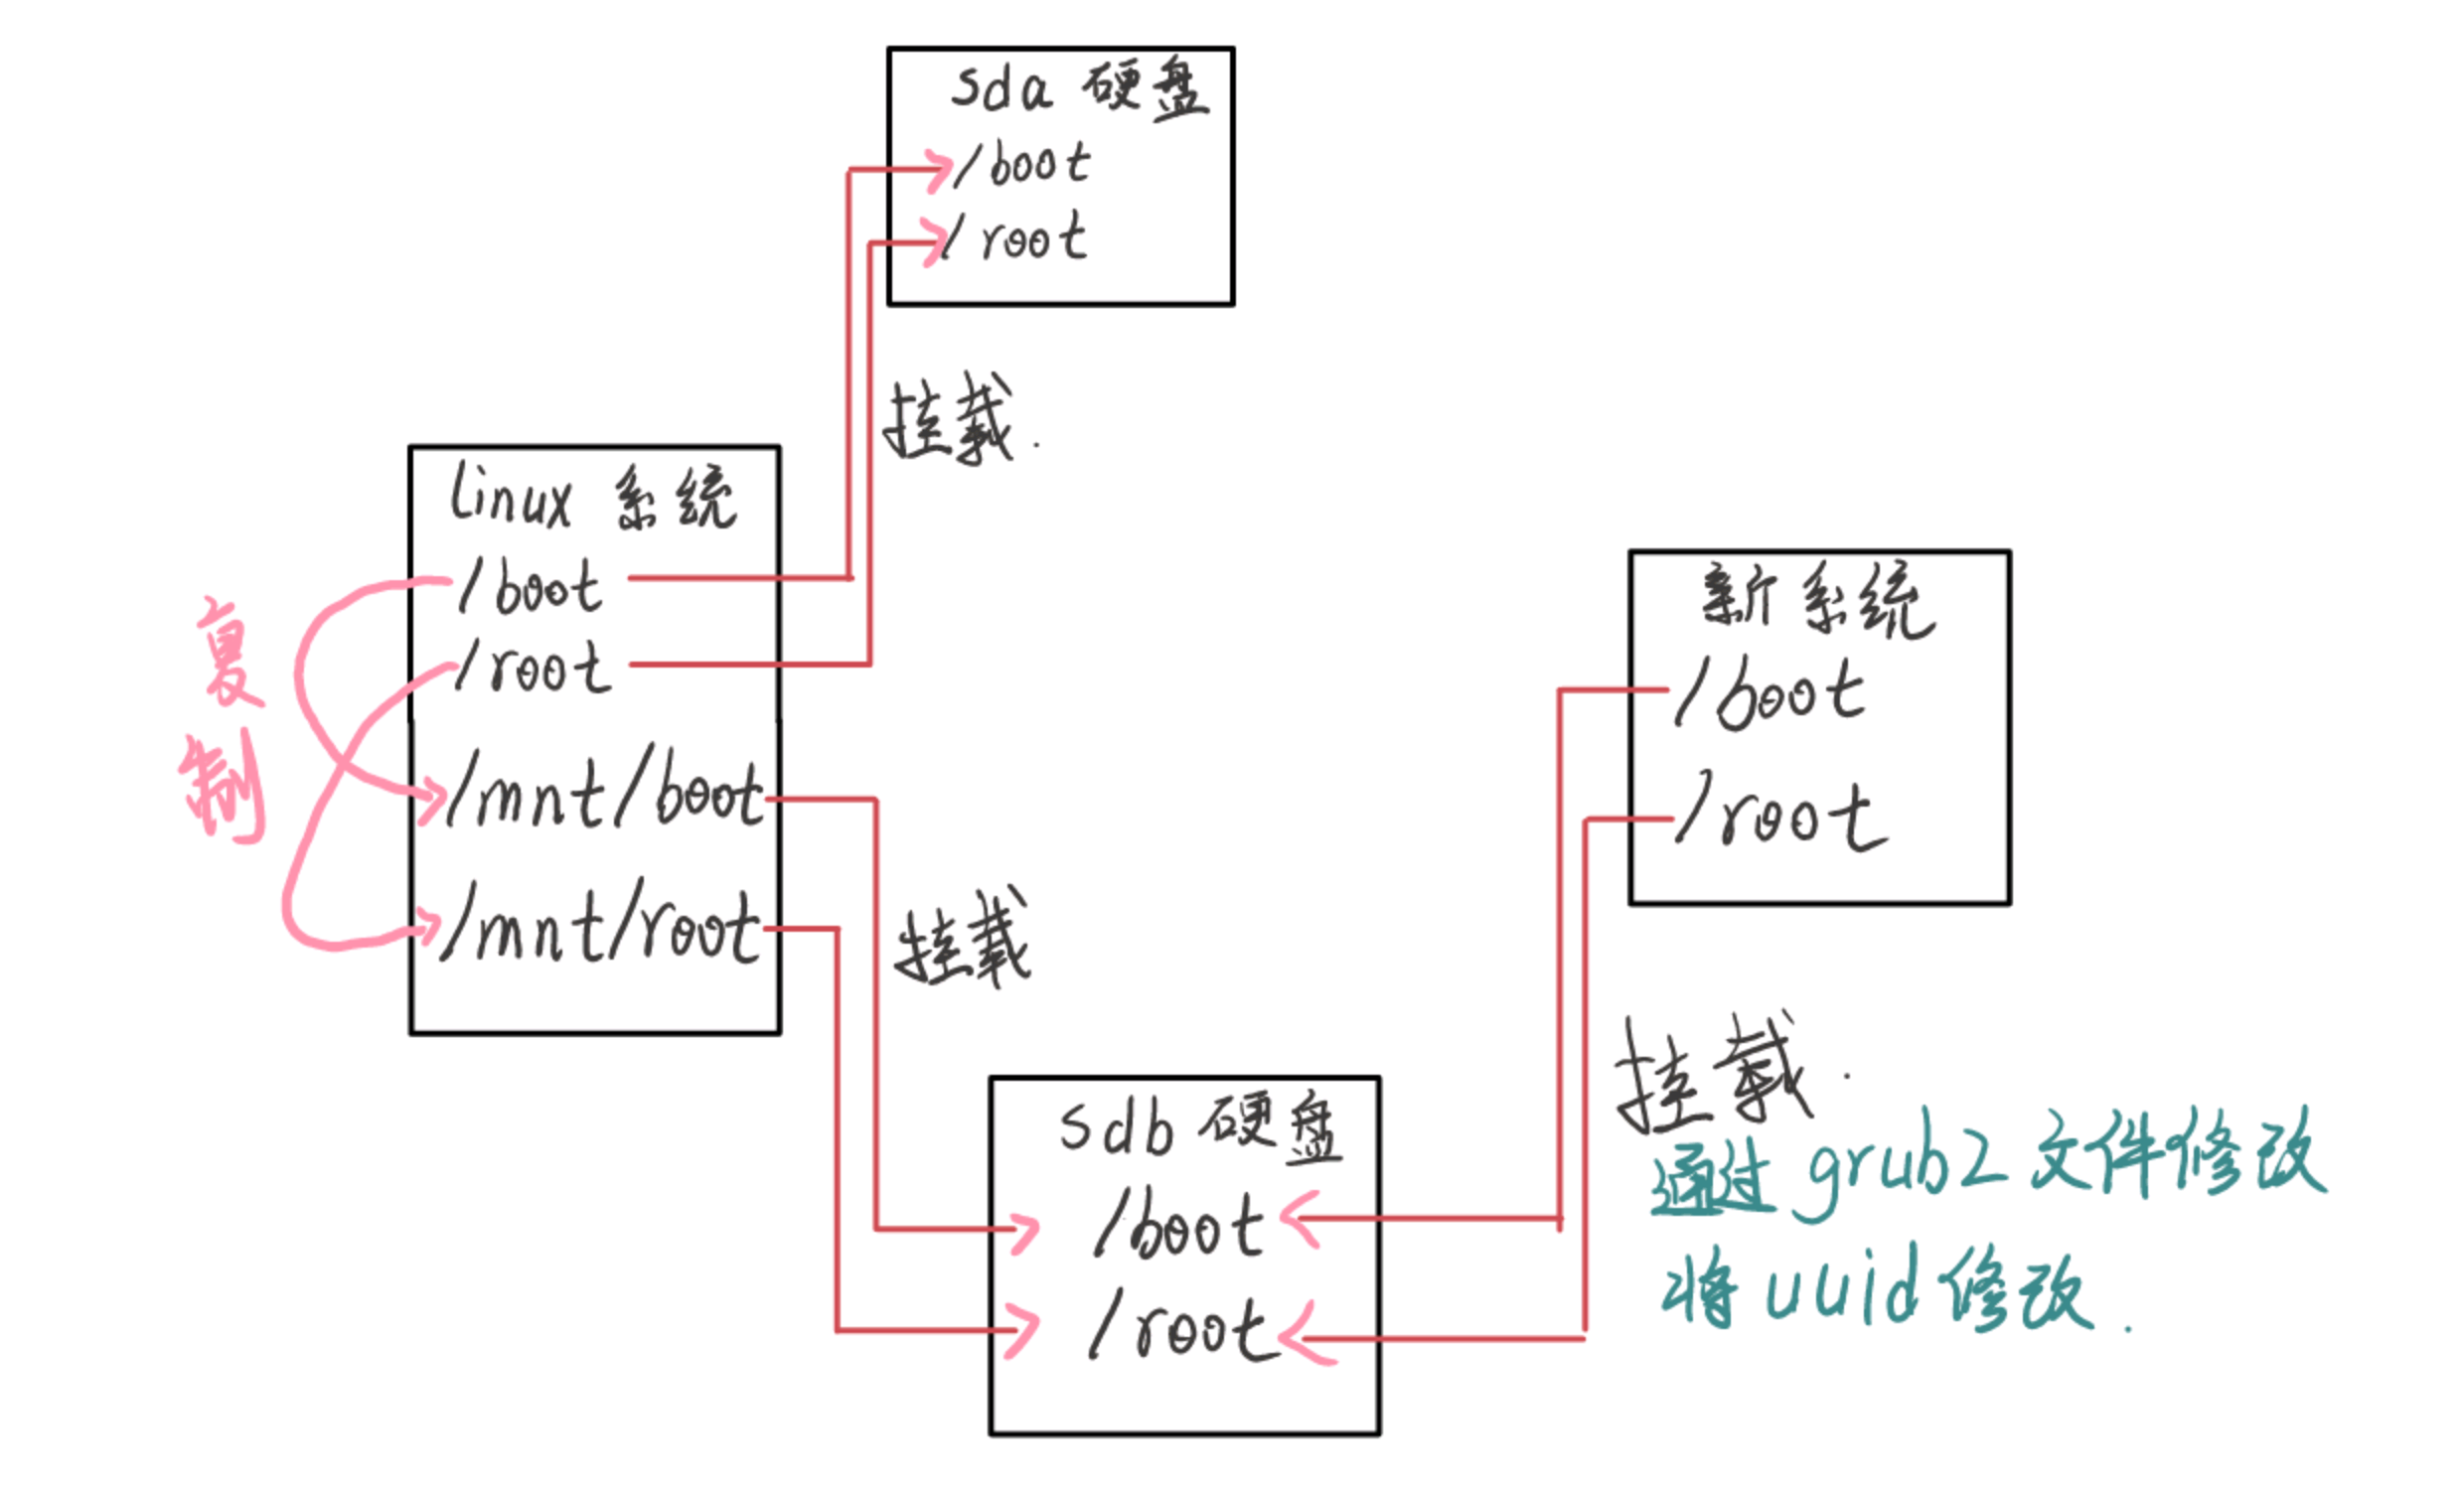 sda 硬盘
/boot
/ root
挂载.
linux 系统
/boot
/root
/mnt/boot
/mnt/root
复制
挂载
新系统
/boot
/root
挂载.
通过grub2文件修改
将uuid修改.
sdb 硬盘
/boot
/root